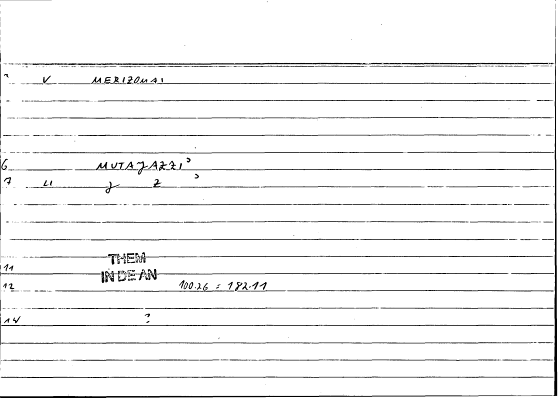 V MERIZOMAI
6 MUTAJAZZI³
7 LI J Z ³
THEM
11 IN DE AN
12 100.26 = 182.11
14 ?